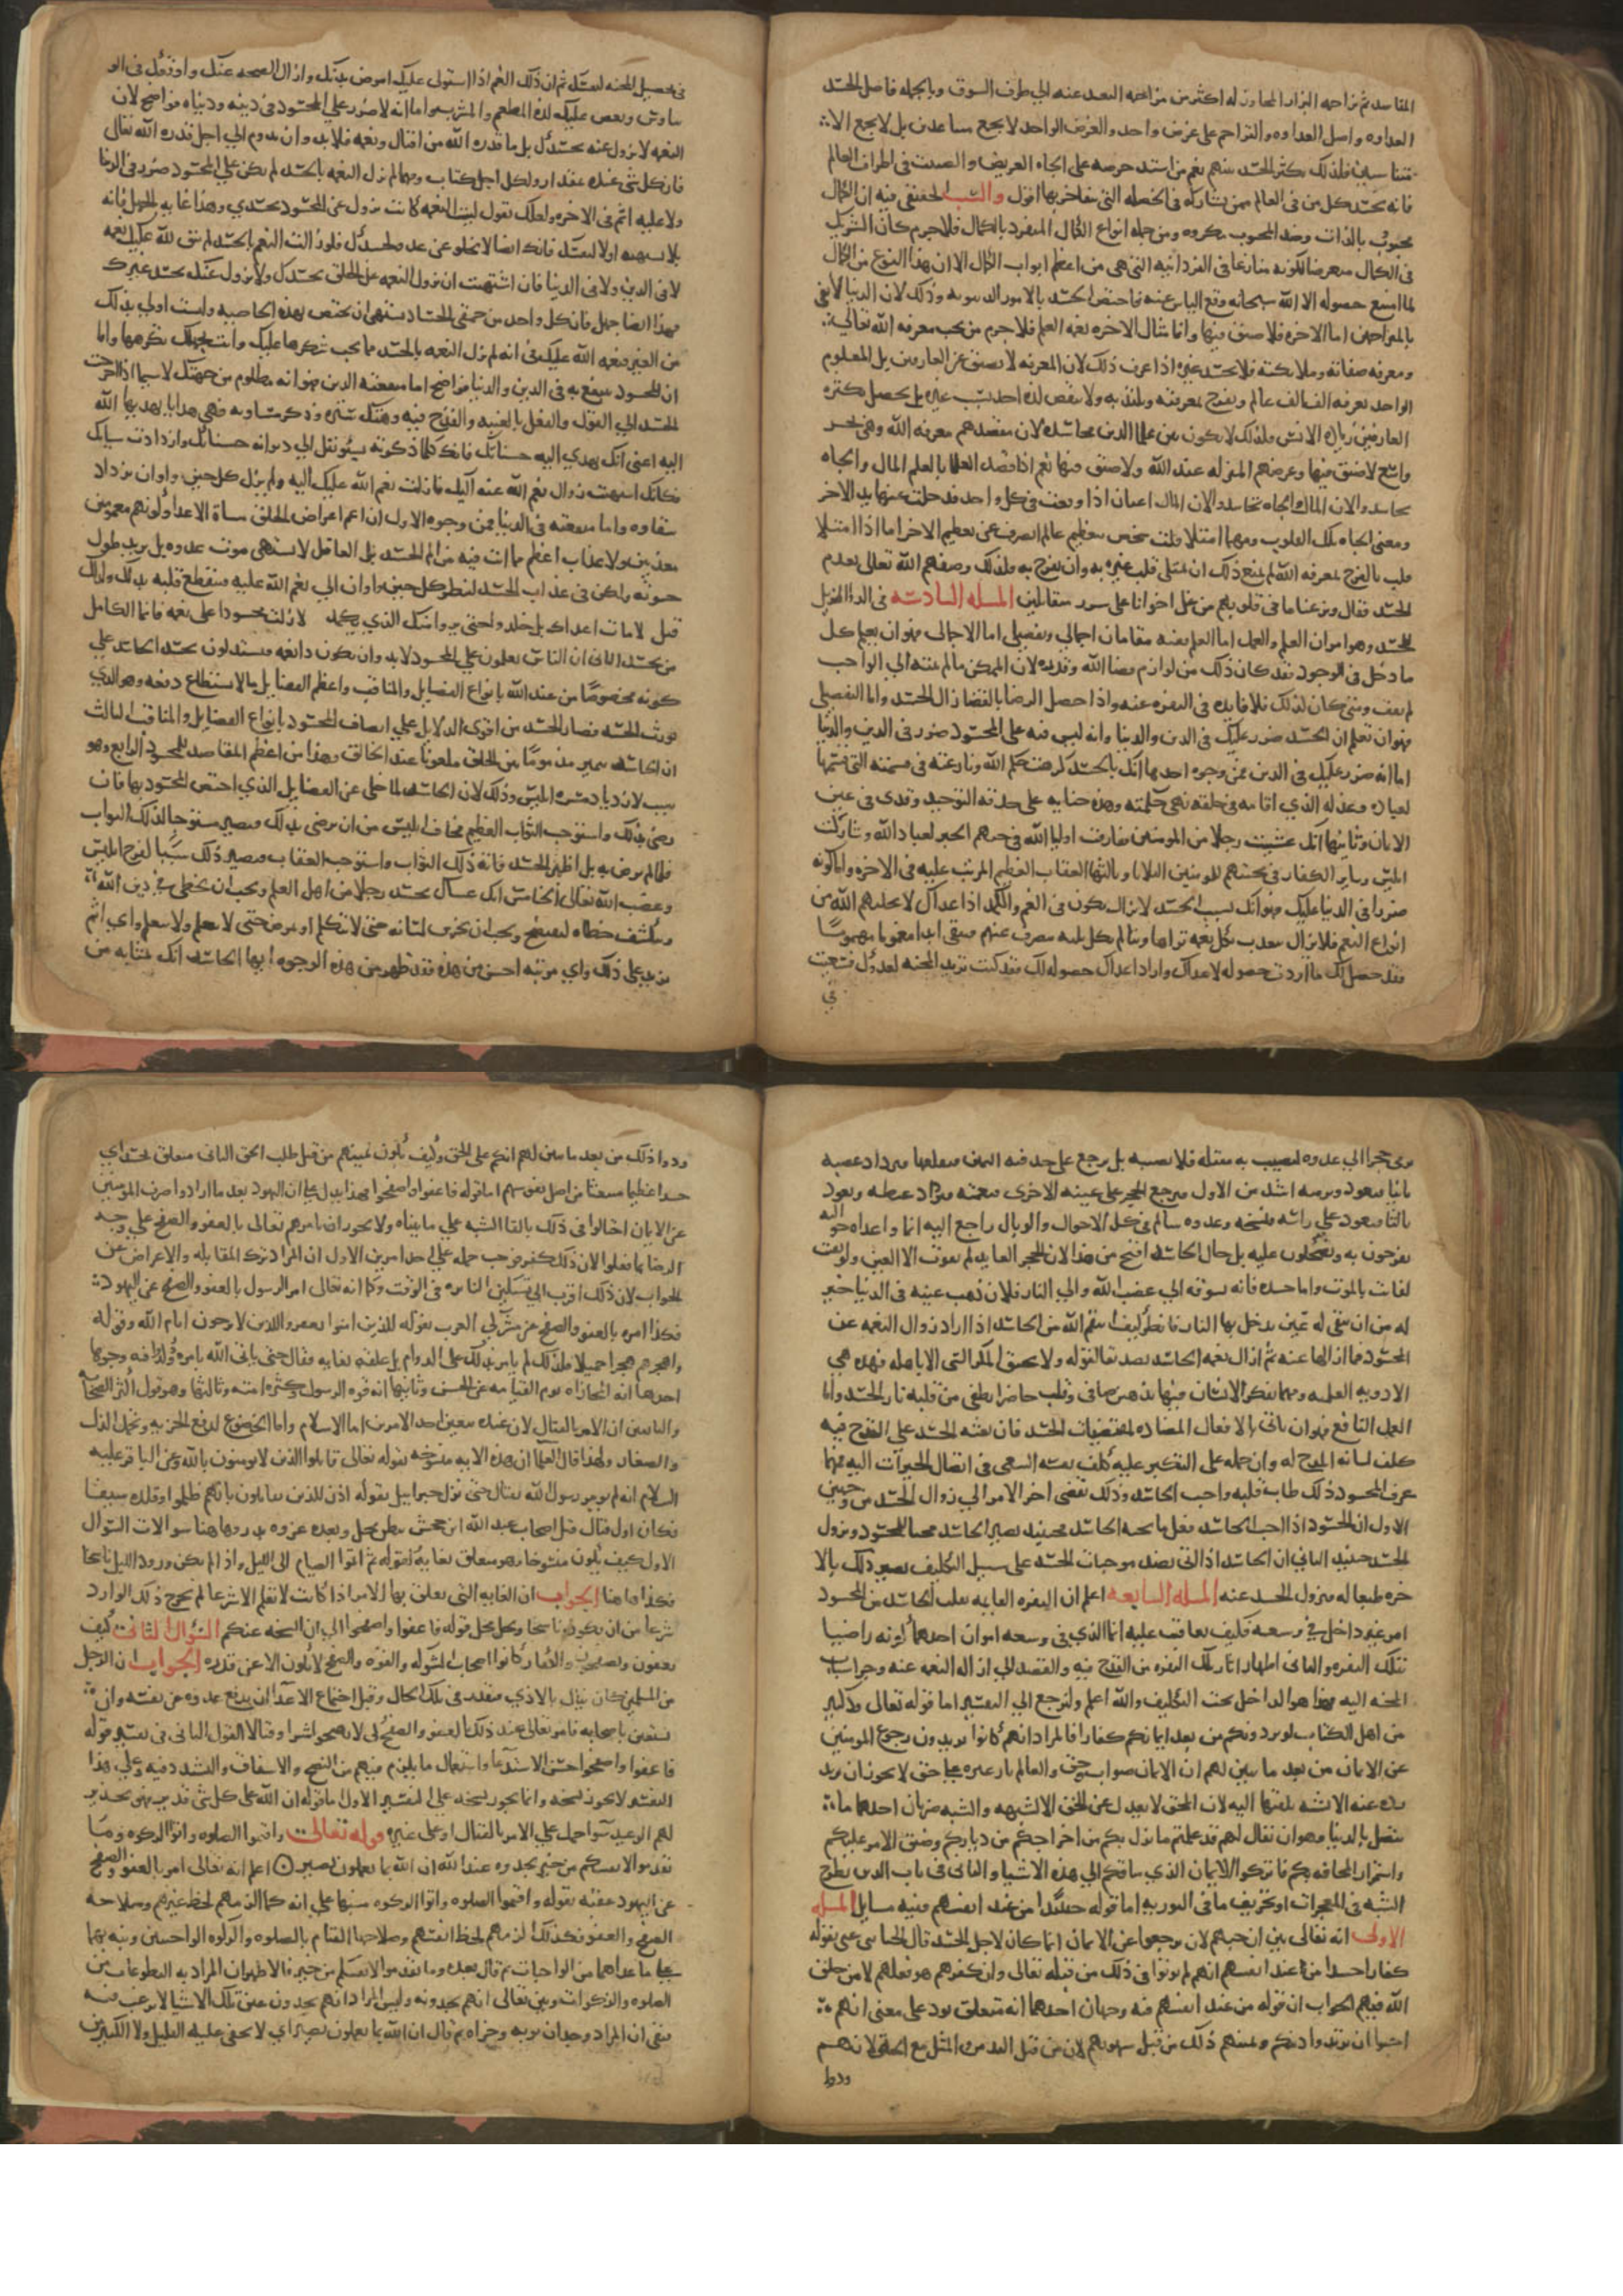 المقاصد ثم مزاحمة البزاز المجاور له اكثر من مزاحمة البعيد عنه الى طرف السوق وبالجملة فاصل الحسد
العداوة واصل العداوة والتزاحم على غرض واحد والغرض الواحد لا يجمع متباعدين بل لا يجمع الا
متناسبين فلذلك يكثر الحسد بينهم نعم من اشتد حرصه على الجاه العريض والصيت في اطراف العالم
فانه يحسد كل من في العالم ممن يشاركه في الخصلة التي يتفاخر بها اقول والسبب الحقيقي فيه ان الكمال
محبوب بالذات وضد المحبوب مكروه ومن جملة انواع الكمال المنفرد بالكمال فلا جرم كان الشريك
في الكمال مبغضا لكونه منازعا في الفردانية التي هي من اعظم ابواب الكمال الا ان هذا النوع من الكمال
لما امتنع حصوله الا الله سبحانه وقع الياس عنه فاختص الحسد بالامور الدنيوية وذلك لان الدنيا لا تفي
بالمتزاحمين اما الاخرة فلا ضيق فيها وانما مثال الاخرة نعمة العلم فلا جرم من يحب معرفة الله تعالى
ومعرفة صفاته وملائكته فلا يحسد غيره اذا عرف ذلك لان المعرفة لا تضيق عن العارفين بل المعلوم
الواحد يعرفه الف الف عالم ويفرح بمعرفته ويلتذ به ولا ينقص لذة احد بسبب غيره بل يحصل بكثرة
العارفين زيادة الانس فلذلك لا يكون بين علما الدين محاسدة لان مقصدهم معرفة الله وهي بحر
واسع لا ضيق فيها وغرضهم المنزلة عند الله ولا ضيق فيها نعم اذا قصد العلما بالعلم المال والجاه
تحاسدوا لان المال والجاه تحاسدوا لان المال اعيان اذا وقعت في كل واحد فقد خلت عنها يد الاخر
ومعنى الجاه ملك القلوب ومهما امتلا قلب شخص بتعظيم عالم انصرف عن تعظيم الاخر اما اذا امتلا
قلب بالفرح لمعرفة الله لم يمنع ذلك ان تمتلي قلب غيره به وان يفرح به فلذلك وصفهم الله تعالى بعدم
الحسد فقال ونزعنا ما في قلوبهم من غل اخوانا على سرر متقابلين المسلة السادسة في الدوا المزيل
للحسد وهو امران العلم والعمل اما العلم ففيه مقامان اجمالي وتفصيلي اما الاجمالي فهو ان يعلم كل
ما دخل في الوجود فقد كان ذلك من لوازم قضا الله وقدره لان الممكن ما لم ينته الى الواجب
لم يقف ومتى كان كذلك فلا فايدة في النفرة عنه واذا حصل الرضا بالقضا زال الحسد واما التفصيلي
فهو ان تعلم ان الحسد ضرر عليك في الدين والدنيا وانه ليس فيه على المحسود ضرر في الدين والدنيا
اما انه ضرر عليك في الدين فمن وجوه احدها انك بالحسد كرهت حكم الله ونازعته في قسمته التي قسمها
لعباده وعدله الذي اقامه في خلقه بخفي حكمته وهذه جناية على حدقة التوحيد وقذى في عين
الايمان وثانيها انك غششت رجلا من المومنين فارقت اوليا الله في حبهم الخير لعباد الله وشاركت
ابليس وساير الكفار في محبتهم للمومنين البلايا وثالثها العقاب العظيم المرتب عليه في الاخرة واما كونه
ضررا في الدنيا عليك فهو انك بسبب الحسد لا تزال تكون في الغم والكمد اذ اعداك لا يخليهم الله من
انواع النعم فلا تزال تتعذب بكل نعمة تراها وتتالم بكل بلية تنصرف عنهم فتبقى ابدا مغموما مهموما
فقد حصل لك ما اردت حصوله لاعداك واراد اعداك حصوله لك فقد كنت تريد المحنة لعدوك فسعيت
في
في تحصيل المحنة لنفسك ثم ان ذلك الغم اذا استولى عليك امرض بدنك وازال الصحة عنك واوقعك في الو
ساوس ونغص عليك لذة المطعم والمشرب واما انه لا ضرر على المحسود في دينه ودنياه فواضح لان
النعمة لا تزول عنه بحسدك بل ما قدره الله من اقبال ونعمة فلا بد وان يدوم الى اجل قدره الله تعالى
فان كل شي عنده بمقدار ولكل اجل كتاب ومهما لم تزل النعمة بالحسد لم يكن على المحسود ضرر في الدنيا
ولا عليه اثم في الاخرة ولعلك تقول ليت النعمة كانت تزول عن المحسود بحسدي وهذا غاية الجهل فانه
بلا تشتهيه اولا لنفسك فانك ايضا لا تخلو عن عدو يحسدك فلو زالت النعم بالحسد لم تبق لله عليك نعمة
لا في الدين ولا في الدنيا فان اشتهيت ان تزول النعمة عن الخلق بحسدك ولا تزول عنك بحسد غيرك
فهذا ايضا جهل فان كل واحد من حمقى الحساد يشتهي ان يختص بهذه الخاصية ولست اولى بذلك
من الغير فنعمة الله عليك في انه لم تزل النعمة بالحسد مما يجب شكرها عليك وانت بجهلك تكرهها واما
ان المحسود ينتفع به في الدين والدنيا فواضح اما منفعته الدين فهو انه مظلوم من جهتك لا سيما اذا اخرجت
الحسد الى القول والفعل بالغيبة والقدح فيه وهتك ستره وذكر مساويه فهي هدايا يهديها الله
اليه اعني انك تهدي اليه حسناتك فانك كلما ذكرته بسو نقل الى ديوانه حسناتك وازدادت سياتك
فكانك اشتهيت زوال نعم الله عنه اليك فازلت نعم الله عليك اليه ولم يزل كل حين واوان تزداد
شقاوة واما منفعته في الدنيا فمن وجوه الاول ان اعم اعراض الخلق مساة الاعدا وكونهم مغمومين
معذبين ولا عذاب اعظم مما انت فيه من الم الحسد بل العاقل لا يشتهي موت عدوه بل يريد طول
حياته ولكن في عذاب الحسد لينظر كل حين واوان الى نعم الله عليه فيتقطع قلبه بذلك ولذلك
قيل لا مات اعداك بل خلدوا حتى يروا منك الذي يكمد لا زلت محسودا على نعمة فانما الكامل
من يحسد الثاني ان الناس يعلمون ان المحسود لا بد وان يكون ذا نعمة فيستدلون بحسد الحاسد على
كونه مخصوصا من عند الله بانواع الفضايل والمناقب واعظم الفضايل ما لا يستطاع دفعه وهو الذي
يورث الحسد فصار الحسد من اقوى الدلايل على اتصاف المحسود بانواع الفضايل والمناقب الثالث
ان الحاسد يصير مذموما بين الخلق ملعونا عند الخالق وهذا من اعظم المقاصد للمحسود الرابع وهو
سبب لازدياد مسرة ابليس وذلك لان الحاسد لما خلى عن الفضايل الذي اختص المحسود بها فان
رضي بذلك واستوجب الثواب العظيم فخاف ابليس من ان يرضى بذلك فيصير مستوجبا لذلك الثواب
فلما لم يرض به بل اظهر الحسد فاته ذلك الثواب واستوجب العقاب فيصير ذلك سببا لفرح ابليس
وغضب الله تعالى الخامس انك عساك تحسد رجلا من اهل العلم وتحب ان يخطي في دين الله
وتكشف خطاه ليفتضح وتحب ان يخرس لسانه حتى لا يتكلم او يمرض حتى لا يعلم ولا يتعلم واي اثم
يزيد على ذلك واي مرتبة اخس من هذه فقد ظهر من هذه الوجوه ايها الحاسد انك بمثابة من
يرمي حجرا الى عدوه ليصيب به مقتله فلا يصيبه بل يرجع على حدقته اليمنى فيقلعها فيزداد غضبه
ثانيا فيعود ويرميه اشد من الاول فيرجع الحجر على عينه الاخرى فيعميه فيزداد غيظه ويعود
ثالثا فيعود على راسه فيشجه وعدوه سالم في كل الاحوال والوبال راجع اليه دايما واعداه حواليه
يفرحون به ويضحكون عليه بل حال الحاسد اقبح من هذا لان الحجر العايد لم يفوت الا العين ولو بقيت
لفاتت بالموت واما حسده فانه يسوقه الى غضب الله والى النار فلان تذهب عينه في الدنيا خير
له من ان تبقى له عين يدخل بها النار فانظر كيف انتقم الله من الحاسد اذا اراد زوال النعمة عن
المحسود فما ازالها عنه ثم ازال نعمة الحاسد تصديقا لقوله ولا يحيق المكر السي الا باهله فهذه هي
الادوية العلمية ومهما تفكر الانسان فيها بذهن صافي وقلب حاضر انطفى من قلبه نار الحسد واما
العمل النافع فهو ان ياتي بالافعال المضادة لمقتضيات الحسد فان بعثه الحسد على القدح فيه
كلف لسانه المدح له وان حمله على التكبر عليه كلف نفسه السعي في ايصال الخيرات اليه فمهما
عرف المحسود ذلك طاب قلبه واحب الحاسد وذلك يفضي اخر الامر الى زوال الحسد من وجهين
الاول ان المحسود اذا احب الحاسد فعل ما يحبه الحاسد فحينيذ يصير الحاسد محبا للمحسود ويزول
الحسد حينيذ الثاني ان الحاسد اذا اتى بضد موجبات الحسد على سبيل التكلف يصير ذلك بالا
خرة طبعا له فيزول الحسد عنه المسلة السابعة اعلم ان النفرة القايمة بقلب الحاسد من المحسود
امر غير داخل في وسعه فكيف يعاقب عليه انما الذي في وسعه امران احدهما كونه راضيا
بتلك النفرة والثاني اظهار اثار تلك النفرة من القدح فيه والقصد الى ازالة النعمة عنه وجر اسباب
المحنة اليه فهذا هو الداخل تحت التكليف والله اعلم ولنرجع الى التفسير اما قوله تعالى ود كثير
من اهل الكتاب لو يردونكم من بعد ايمانكم كفارا فالمراد انهم كانوا يريدون رجوع المومنين
عن الايمان من بعد ما تبين لهم ان الايمان صواب وحق والعالم بان غيره على حق لا يجوز ان يريد
رده عنه الا بشبهة يلقيها اليه لان المحق لا يعدل عن الحق الا لشبهة والشبهة ضربان احدهما ما
يتصل بالدنيا وهو ان يقال لهم قد علمتم ما نزل بكم من اخراجكم من دياركم وضيق الامر عليكم
واستمرار المخافة بكم فاتركوا الايمان الذي ساقكم الى هذه الاشيا والثاني في باب الدين بطرح
الشبه في المعجزات او تحريف ما في التورية اما قوله حسدا من عند انفسهم ففيه مسايل المسلة
الاولى انه تعالى بين ان حبهم لان يرجعوا عن الايمان انما كان لاجل الحسد قال الجباي عنى بقوله
كفارا حسدا من عند انفسهم انهم لم يوتوا في ذلك من قبله تعالى وان كفرهم هو فعلهم لا من خلق
الله فيهم الجواب ان قوله من عند انفسهم فيه وجهان احدهما انه متعلق بود على معنى انهم
احبوا ان يرتدوا دينكم وتمنيهم ذلك من قبل شهوتهم لا من قبل التدين والمثل مع الحق لانهم
ودوا
ودوا ذلك من بعد ما تبين لهم انكم على الحق وكيف يكون تمنيهم من قبل طلب الحق الثاني متعلق بحسدا اي
حسدا عظيما منبعثا من اصل نفوسهم اما قوله فاعفوا واصفحوا فهذا يدل على ان اليهود بعد ما ارادوا صرف المومنين
عن الايمان احتالوا في ذلك بالقا الشبه على ما بيناه ولا يجوز ان يامرهم تعالى بالعفو والصفح على وجه
الرضا بما فعلوا لان ذلك كفر فوجب حمله على احد امرين الاول ان المراد ترك المقابلة والاعراض عن
الجواب لان ذلك اقرب الى تسكين الثايرة في الوقت وكما انه تعالى امر الرسول بالعفو والصفح عن اليهود
فكذا امره بالعفو والصفح عن مشركي العرب بقوله للذين امنوا يغفروا للذين لا يرجون ايام الله وقوله
واهجرهم هجرا جميلا فلذلك لم يامر بذلك على الدوام بل علقه بغاية فقال حتى ياتي الله بامره وذكروا فيه وجوها
احدها انه المجازاة يوم القيامة عن الحسن وثانيها انه قوة الرسول وكثرة امته وثالثها وهو قول اكثر الصحابة
والتابعين ان الامر بالقتال لان عنده يتعين احد الامرين اما الاسلام واما الخضوع لدفع الجزية وتحمل الذل
والصغار ولهذا قال العلما ان هذه الاية منسوخة بقوله تعالى قاتلوا الذين لا يومنون بالله وعن الباقر عليه
السلام انه لم يومر رسول الله بقتال حتى نزل جبراييل بقوله اذن للذين يقاتلون بانهم ظلموا وقلده سيفا
فكان اول قتال قتل اصحاب عبد الله ابن جحش ببطن نخل وبعده غزوه بدر وهاهنا سوالات السوال
الاول كيف يكون منسوخا وهو متعلق بغاية كقوله ثم اتموا الصيام الى الليل واذ لم يكن ورود الليل ناسخا
فكذا هاهنا الجواب ان الغاية التي يعلق بها الامر اذا كانت لا تعلم الا شرعا لم يخرج ذلك الوارد
شرعا من ان يكون ناسخا وحل محل قوله فاعفوا واصفحوا الى ان انسخه عنكم السوال الثاني كيف
يعفون ويصفحون والكفار كانوا اصحاب الشوكة والقوة والصفح لا يكون الا عن قدرة الجواب ان الرجل
من المسلمين كان ينال بالاذى فيقدر في تلك الحال وقبل اجتماع الاعدا ان يدفع عدوه عن نفسه وان
يستعين باصحابه فامر تعالى عند ذلك بالعفو والصفح لكي لا يهيجوا شرا وقتالا القول الثاني في تفسير قوله
فاعفوا واصفحوا حسن الاستدعا واستعمال ما يلزم فيهم من النصح والاشفاق والتشدد فيه وعلى هذا
التفسير لا يجوز نسخه وانما يجوز نسخه على التفسير الاول اما قوله ان الله على كل شي قدير فهو تحذير
لهم بالوعيد سوا حمل على الامر بالقتال او على غيره قوله تعالى واقيموا الصلوة واتوا الزكوة وما
تقدموا لانفسكم من خير تجدوه عند الله ان الله بما تعملون بصير اعلم انه تعالى امر بالعفو والصفح
عن اليهود عقبه بقوله واقيموا الصلوة واتوا الزكوة تنبيها على انه كما الزمهم لحظ غيرهم وصلاحه
الصفح والعفو فكذلك الزمهم لحظ انفسهم وصلاحها القيام بالصلوة والزكوة الواجبتين ونبه بهما
على ما عداهما من الواجبات ثم قال بعده وما تقدموا لانفسكم من خير فالاظهر ان المراد به التطوعات من
الصلوة والزكوات وبين تعالى انهم يجدونه وليس المراد انهم يجدون عين تلك الاشيا لانها تبقى فيه
فبقى ان المراد وجدان ثوابه وجزاه ثم قال ان الله بما تعملون بصير اي لا يخفى عليه القليل ولا الكثير من